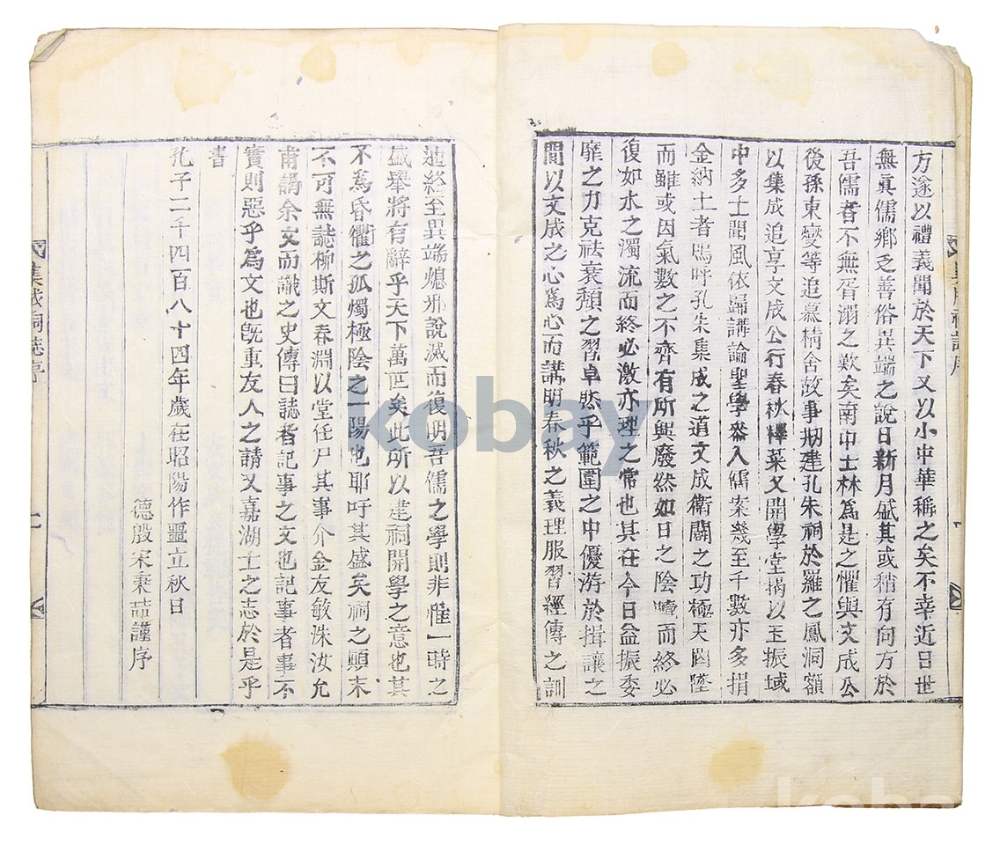 方遂以禮義聞於天下又以小中華稱之矣不幸近日世
無眞儒鄕乏善俗異端之說日新月盛其或稍有向方於
吾儒者不無胥溺之歎矣南中士林爲是之懼與文成公
後孫東燮等追慕精舍故事刱建孔朱祠於羅之鳳洞額
以集成追享文成公行春秋釋菜又開學堂揭以玉振域
中多士聞風依歸講論聖學參入儒案幾至千數亦多捐
金納土者嗚呼孔朱集成之道文成衛闢之功極天罔墜
而雖或因氣數之不齊有所興廢然如日之陰曀而終必
復如水之濁流而終必澈亦理之常也其在今日益振委
靡之力克祛衰頹之習卓然乎範圍之中優游於揖讓之
間以文成之心爲心而講明春秋之義理服習經傳之訓
迪終至異端熄邪說滅而復明吾儒之學則非惟一時之
盛舉將有辭乎天下萬世矣此所以建祠開學之意也其
不爲昏衢之孤燭極陰之一陽也耶吁其盛矣祠之顚末
不可無誌柳斯文春淵以堂任尸其事介金友敏洙汝允
甫謁余文而識之史傳曰誌者記事之文也記事者事不
實則惡乎爲文也旣重友人之請又嘉湖士之志於是乎
書
孔子二千四百八十四年歲在昭陽作噩立秋日
德殷宋秉喆謹序
集成祠誌序
kobay